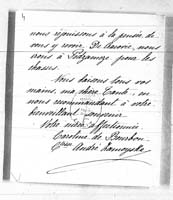 4
nous réjouissons à la pensée de
vous y revoir. De Savoie, nous
nous à Podzamcze pour les
chasses.
Nous baisons bien vos
mains, ma chère Tante, en
nous recommandant à votre
bienveillant souvenir.
Votre nièce affectionnée
Caroline de Bourbon
Ctesse André Zamoyska